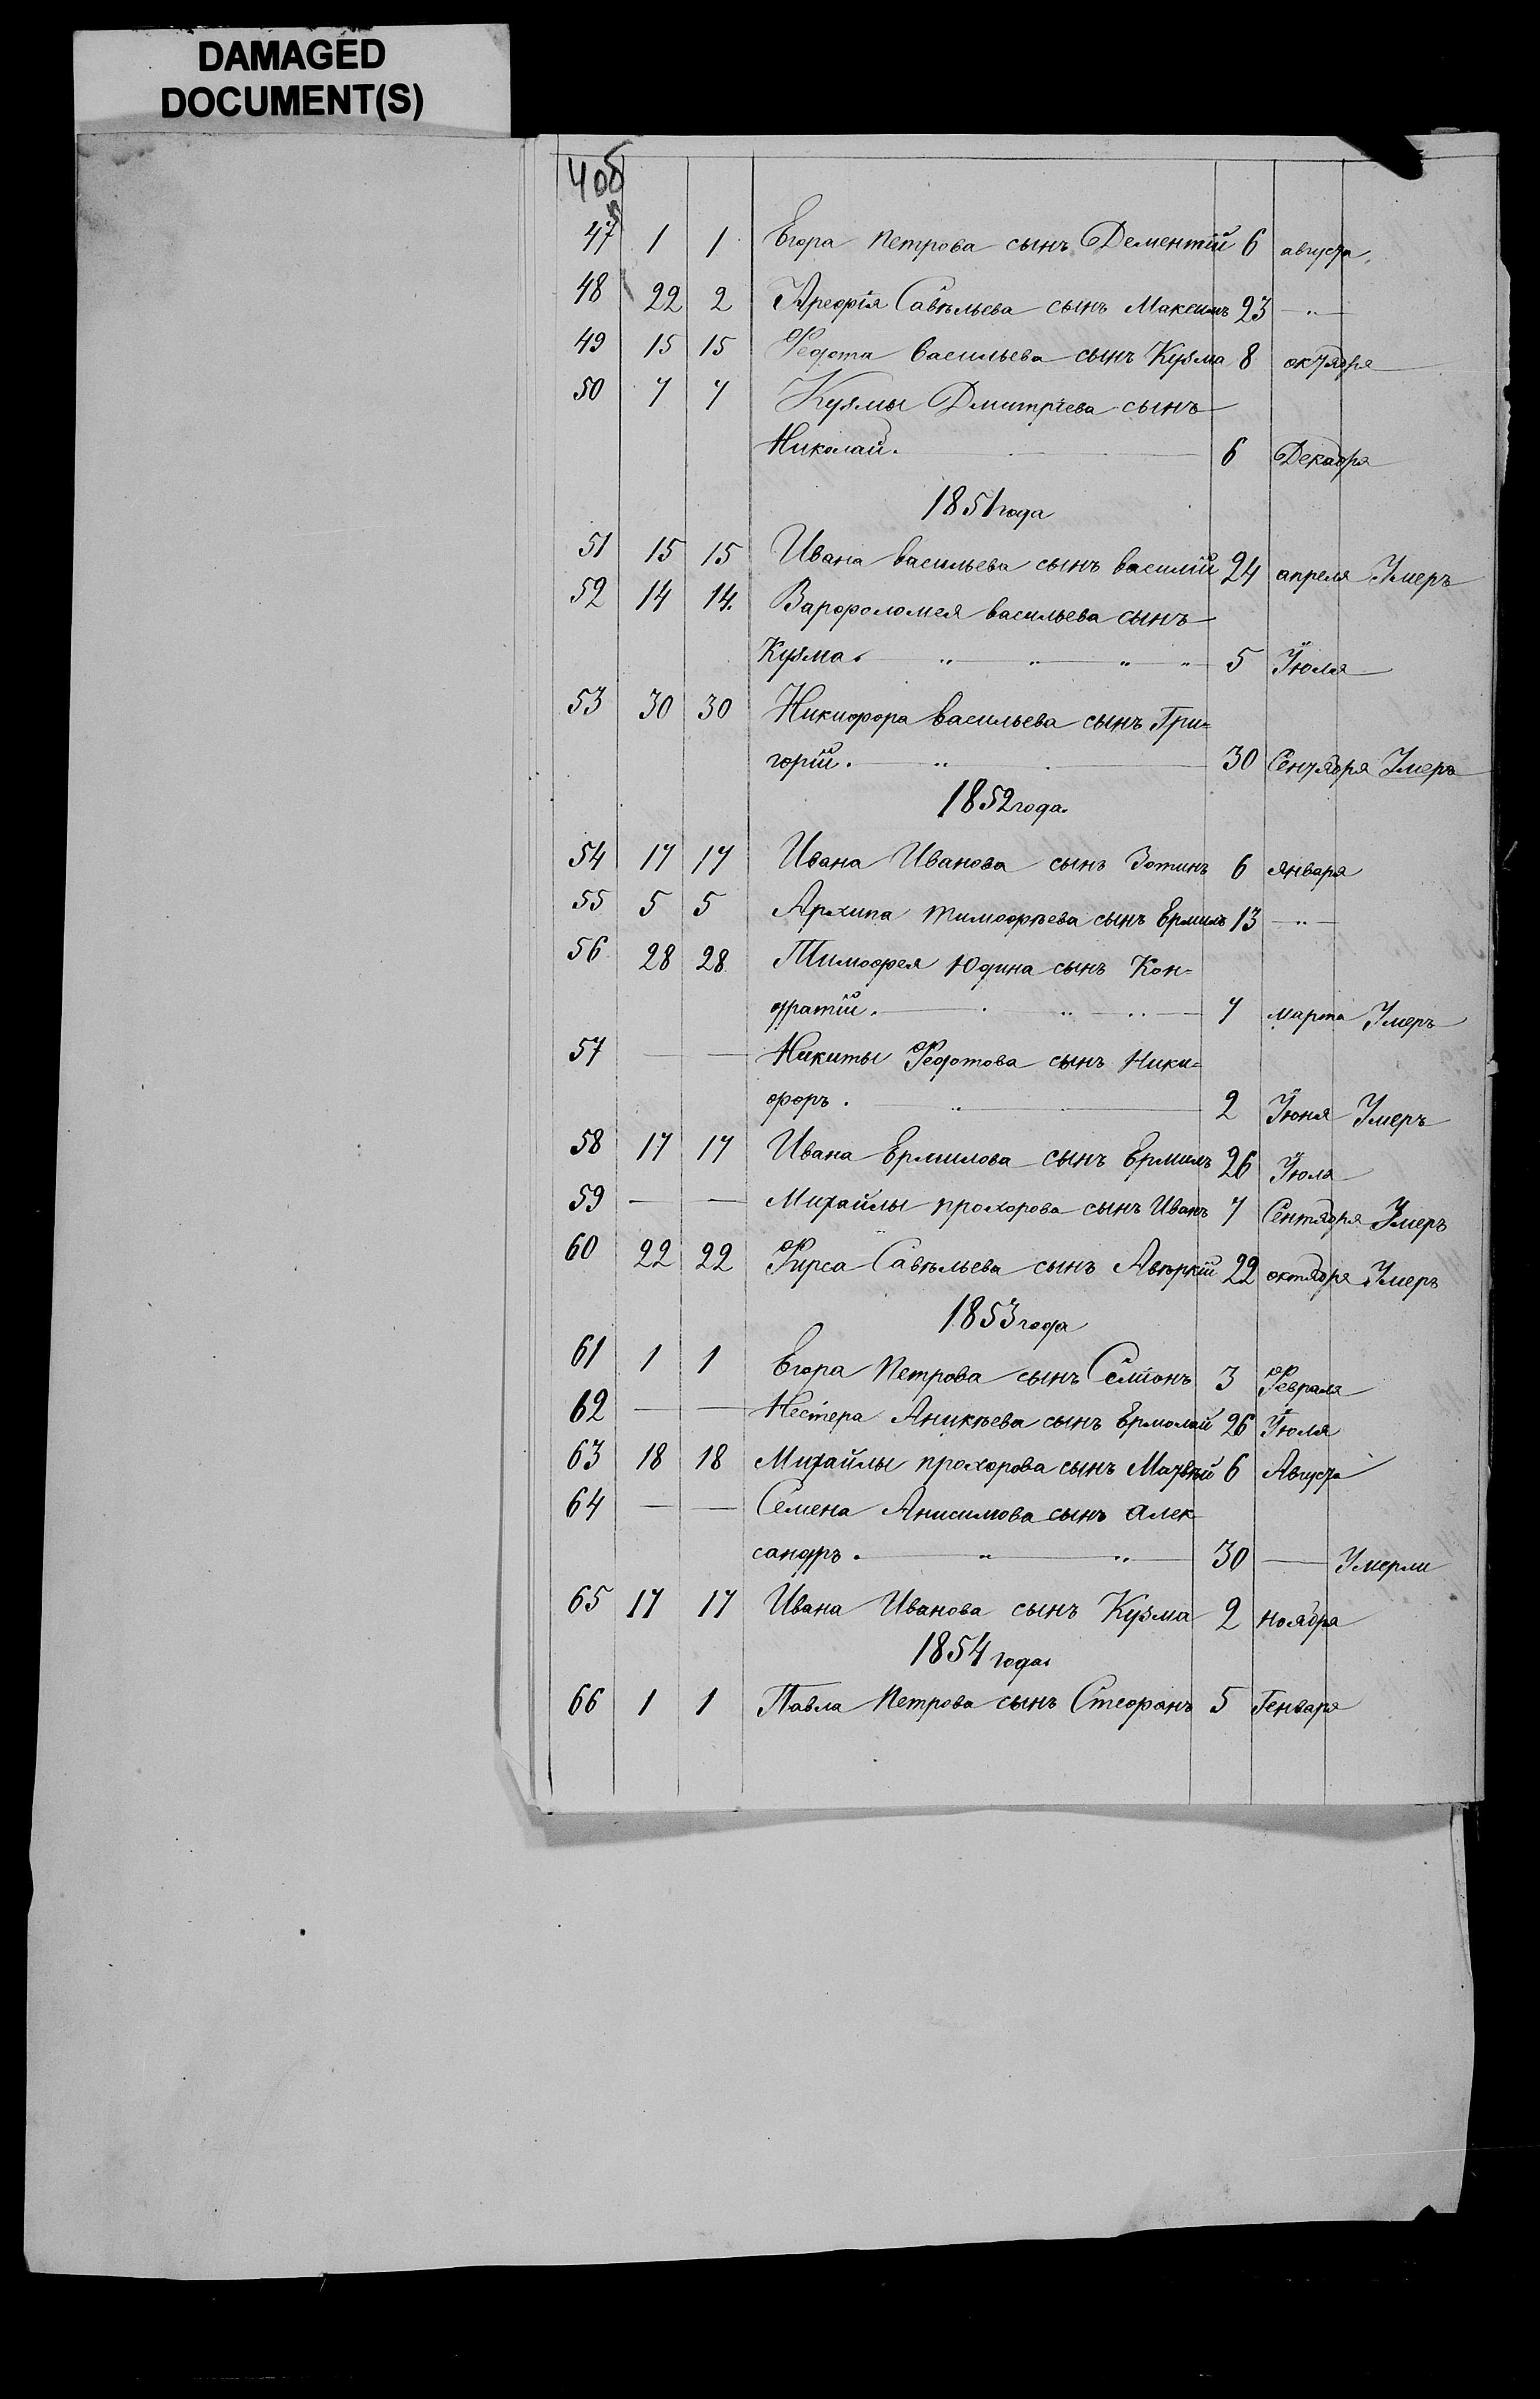 DAMAGED
DOCUMENT(S)
40б
47 1 1 Егора Петрова сынъ Дементій 6 августа
48 22 2 Арефія Савѣльева сынъ Максимъ 23 — " —
49 15 15 Федота Васильева сынъ Кузма 8 октября
50 7 7 Кузмы Дмитріева сынъ
Николай. 6 Декабря
1851 года
51 15 15 Ивана Васильева сынъ Василій 24 апреля Умеръ
52 14 14. Варфоломея Васильева сынъ
Кузма. " " " " 5 Іюля
53 30 30 Никифора Васильева сынъ Гри=
горій. " 30 Сентября Умеръ
1852 года.
54 17 17 Ивана Иванова сынъ Зотинъ 6 января
55 5 5 Архипа Тимофѣева сынъ Ермилъ 13 — " —
56 28 28 Тимофея Юдина сынъ Кон-
дратій. " " 7 марта Умеръ
57 — — Никиты Федотова сынъ Ники=
форъ. " 2 Іюня Умеръ
58 17 17 Ивана Ермилова сынъ Ермилъ 26 Іюля
59 — — Михайлы Прохорова сынъ Иванъ 7 Сентября Умеръ
60 22 22 Фирса Савѣльева сынъ Авѣркій 22 октября Умеръ
1853 года
61 1 1 Егора Петрова сынъ Семіонъ 3 Февраля
62 — — Нестера Аникѣева сынъ Ермолай 26 Іюля
63 18 18 Михайлы Прохорова сынъ Матвѣй 6 Августа
64 — — Семена Анисимова сынъ Алек-
сандръ. " " 30 — Умерли
65 17 17 Ивана Иванова сынъ Кузма 2 ноября
1854 года.
66 1 1 Павла Петрова сынъ Стефанъ 5 Генваря